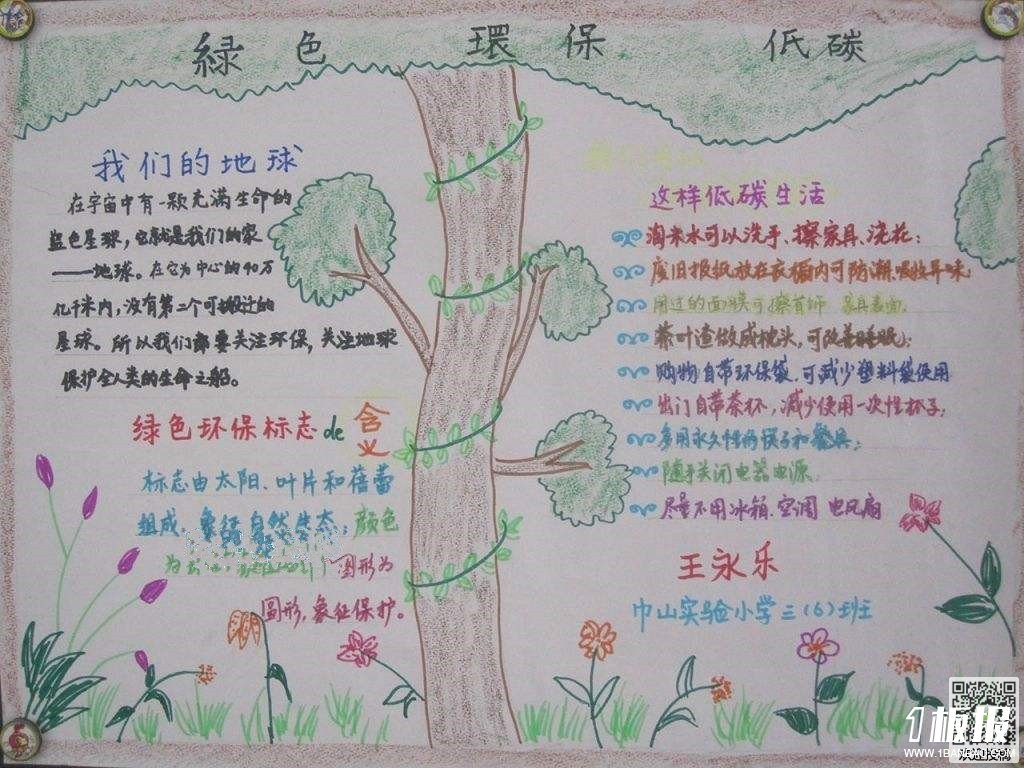 綠色 環保 低碳
我们的地球
在宇宙中有一颗充满生命的
蓝色星球,它就是我们的家
——地球。在它为中心的40万
亿千米内,没有第二个可搬迁的
星球。所以我们都要关注环保,关注地球
保护全人类的生命之船。
绿色环保标志de含义
标志由太阳、叶片和蓓蕾
组成,象征自然生态;颜色
为 圆形为
圆形,象征保护。
这样低碳生活
淘米水可以洗手、擦家具、浇花;
废旧报纸放在衣橱内可防潮、吸收异味;
用过的面膜可擦首饰 家具表面,
茶叶渣做成枕头,可改善睡眠;
购物自带环保袋,可减少塑料袋使用
出门自带茶杯,减少使用一次性杯子;
多用永久性的筷子和餐具;
随手关闭电器电源
尽量不用冰箱、空调 电风扇
王永乐
巾山实验小学三(6)班
1板报
WWW.1BANBAO.COM
欢迎投稿